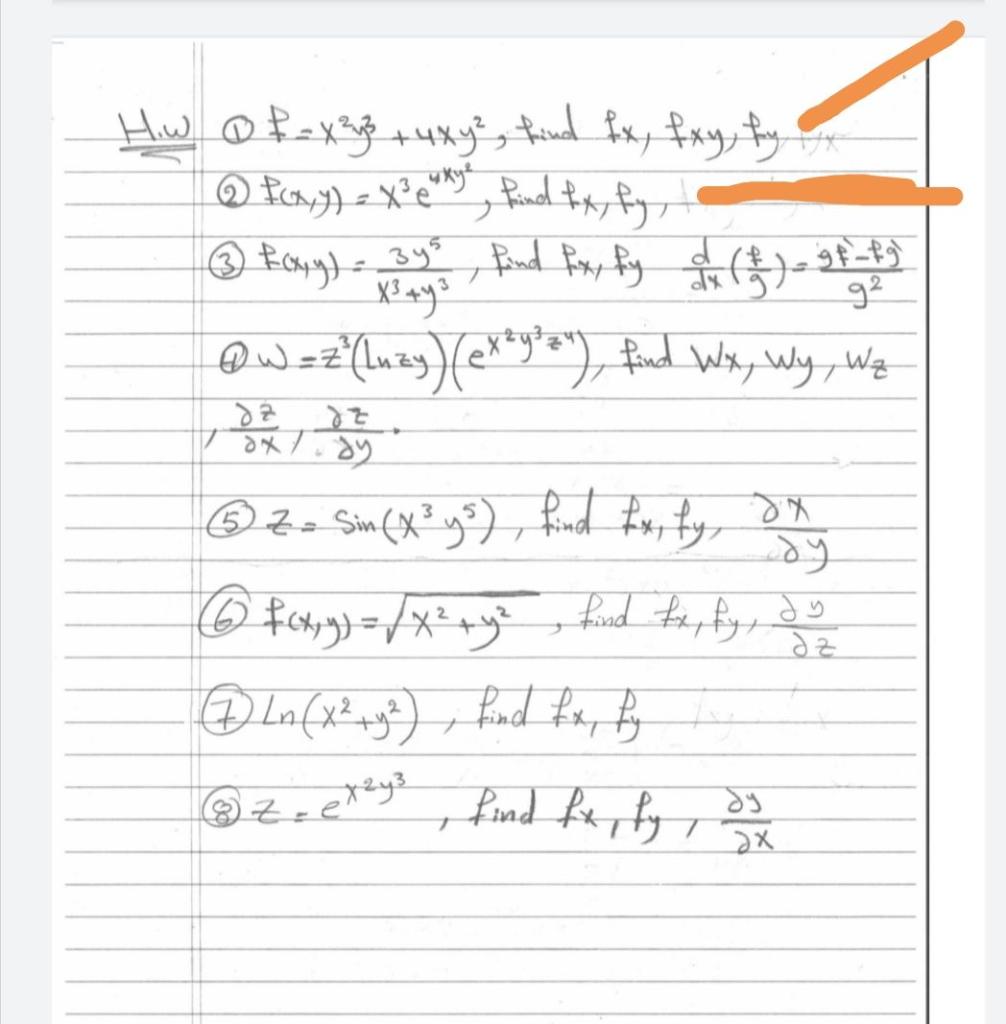 H.W ① f = x²y³ + 4xy², find fx, fxy, fy
② f(x,y) = x³e^(4xy²), find fx, fy,
③ f(x,y) = 3y⁵/(x³+y³), find fx, fy d/dx (f/g) = (gf` - fg`)/g²
④ W = z³(Ln zy)(e^(x²y³z⁴)), find Wx, Wy, Wz
, ∂z/∂x, ∂z/∂y.
⑤ Z = Sin(x³y⁵), find fx, fy, ∂x/∂y
⑥ f(x,y) = √(x²+y²), find fx, fy, ∂y/∂z
⑦ Ln(x²+y²), find fx, fy
⑧ Z = e^(x²y³), find fx, fy, ∂y/∂x